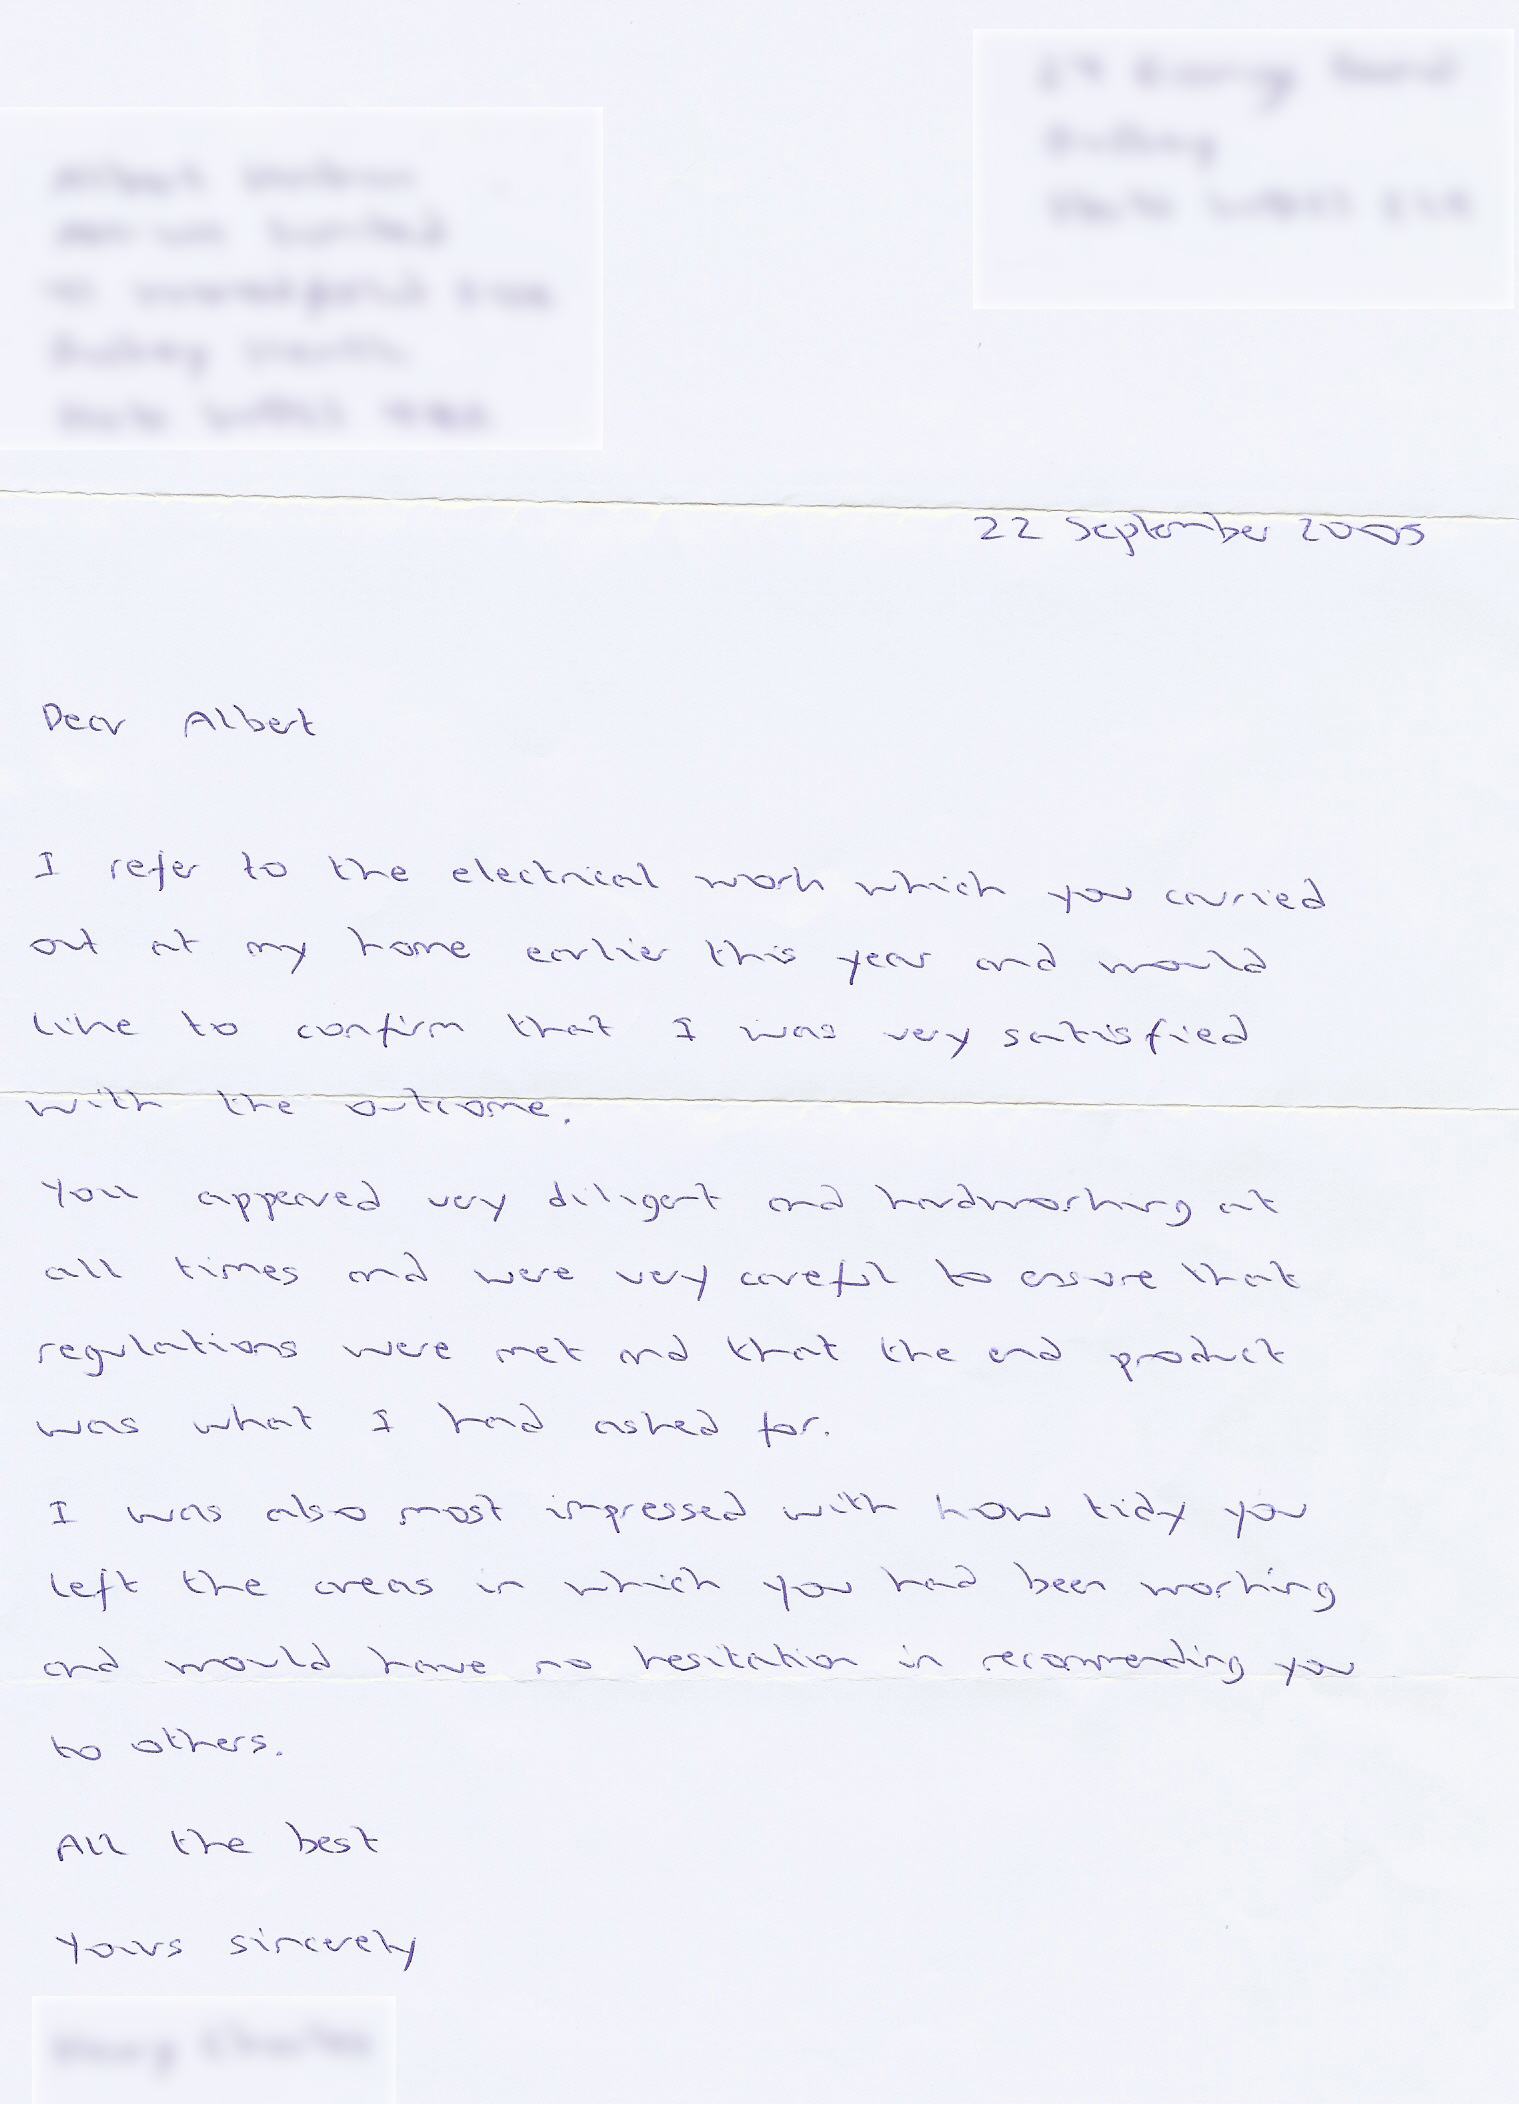 22 September 2005
Dear Albert
I refer to the electrical work which you carried
out at my home earlier this year and would
like to confirm that I was very satisfied
with the outcome.
You appeared very diligent and hardworking at
all times and were very careful to ensure that
regulations were met and that the end product
was what I had asked for.
I was also most impressed with how tidy you
left the areas in which you had been working
and would have no hesitation in recommending you
to others.
All the best
Yours sincerely